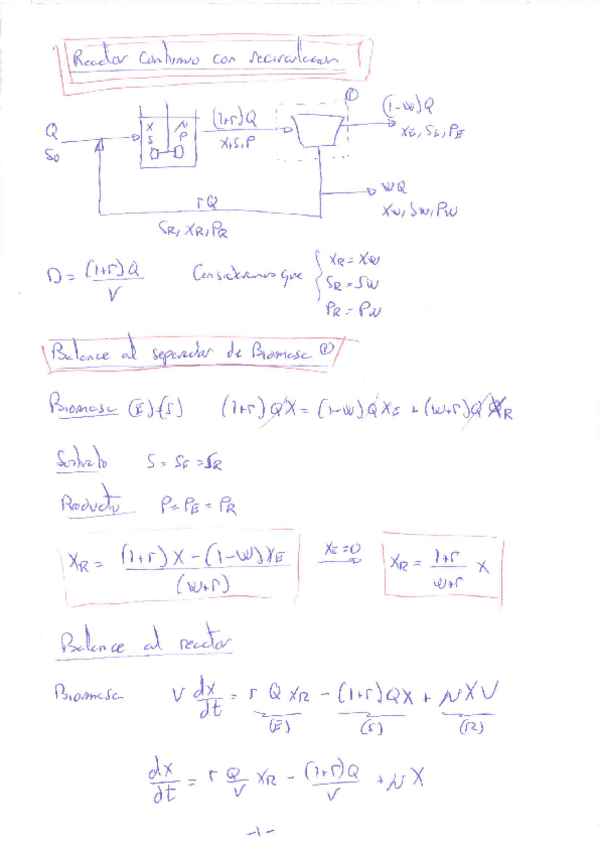 Reactor Continuo con recirculación
①
Q
S₀
X
S
μ
P
(1+r)Q
X,S,P
(1-w)Q
X_E, S_E, P_E
wQ
X_W, S_W, P_W
rQ
S_R, X_R, P_R
D = (1+r)Q / V
Consideramos que { X_R = X_W
S_R = S_W
P_R = P_W
Balance al separador de Biomasa ①
Biomasa (E)=(S) (1+r)QX = (1-w)QX_E + (w+r)Q X_R
Sustrato S = S_E = S_R
Producto P = P_E = P_R
X_R = ((1+r)X - (1-w)X_E) / (w+r) X_E=0 → X_R = (1+r)/(w+r) X
Balance al reactor
Biomasa V dx/dt = r Q X_R - (1+r)QX + μXV
(E) (S) (R)
dx/dt = r Q/V X_R - (1+r)Q/V + μX
-1-